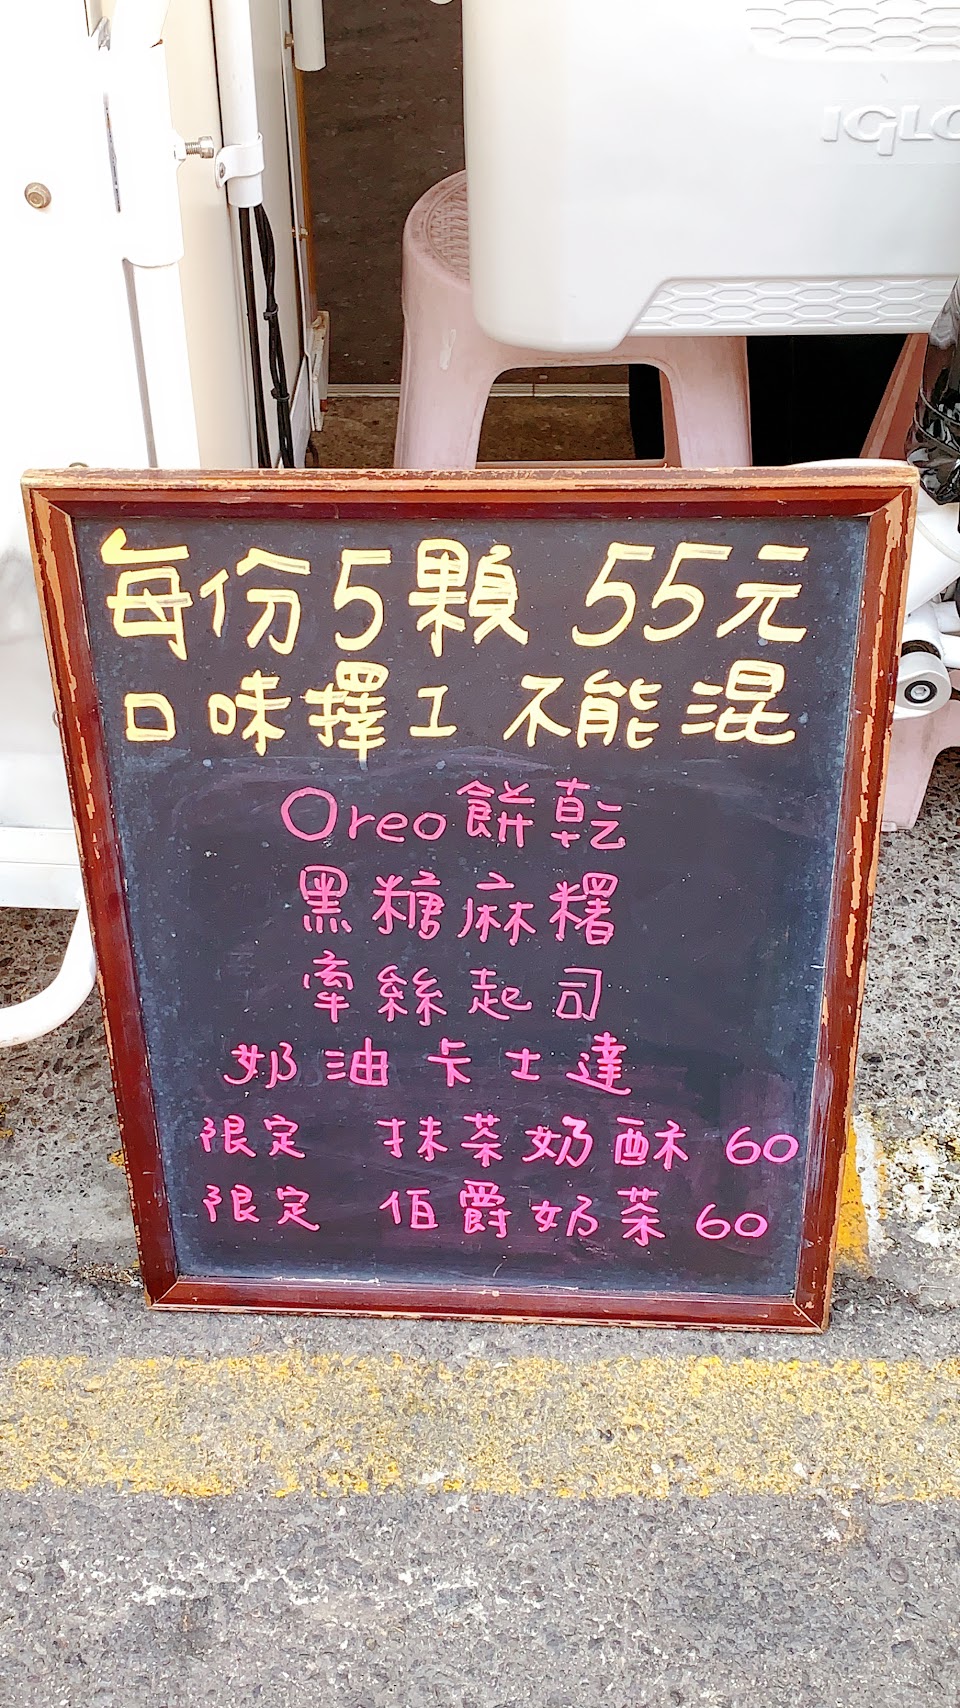 IGLO
每份5顆 55元
口味擇1 不能混
Oreo餅乾
黑糖麻糬
牽絲起司
奶油卡士達
限定 抹茶奶酥 60
限定 伯爵奶茶 60